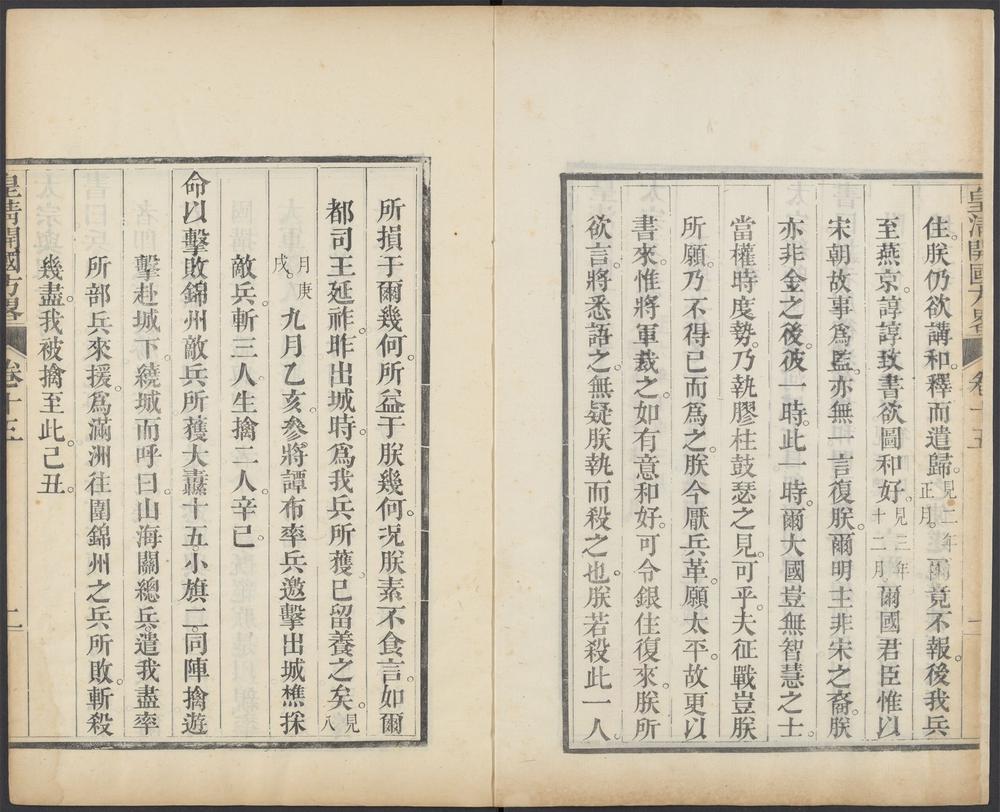 皇清開國方畧 卷十五 一
住。朕仍欲講和。釋而遣歸。見二年正月。爾竟不報。後我兵
至燕京。諄諄致書。欲圖和好。見三年十二月。爾國君臣惟以
宋朝故事爲監。亦無一言復朕。爾明主非宋之裔。朕
亦非金之後。彼一時。此一時。爾大國豈無智慧之士。
當權時度勢。乃執膠柱鼓瑟之見。可乎。夫征戰豈朕
所願。乃不得已而爲之。朕今厭兵革。願太平。故更以
書來。惟將軍裁之。如有意和好。可令銀住復來。朕所
欲言。將悉語之。無疑朕執而殺之也。朕若殺此一人。
所損于爾幾何。所益于朕幾何。況朕素不食言。如爾
都司王延祚。昨出城時。爲我兵所獲。已留養之矣。見八
月庚戌。九月乙亥。參將譚布率兵邀擊出城樵採
敵兵。斬三人。生擒二人。辛巳。
命以擊敗錦州敵兵所獲大纛十五。小旗二。同陣擒遊
擊赴城下。繞城而呼曰。山海關總兵。遣我盡率
所部兵來援。爲滿洲往圍錦州之兵所敗。斬殺
幾盡。我被擒至此。己丑。
皇清開國方畧 卷十五 二